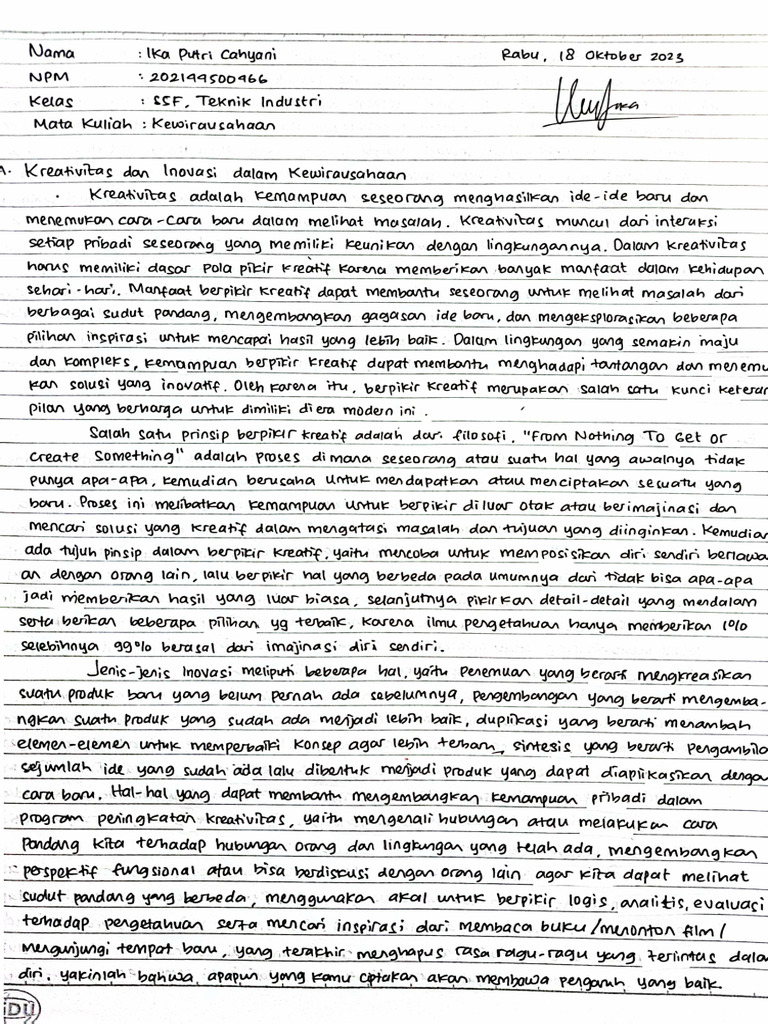 Nama : Ika Putri Cahyani Rabu, 18 Oktober 2023
NPM : 202144500466
Kelas : S5F, Teknik Industri
Mata Kuliah : Kewirausahaan
A. Kreativitas dan Inovasi dalam Kewirausahaan
Kreativitas adalah kemampuan seseorang menghasilkan ide-ide baru dan
menemukan cara-cara baru dalam melihat masalah. Kreativitas muncul dari interaksi
setiap pribadi seseorang yang memiliki keunikan dengan lingkungannya. Dalam kreativitas
harus memiliki dasar pola pikir kreatif karena memberikan banyak manfaat dalam kehidupan
sehari-hari. Manfaat berpikir kreatif dapat membantu seseorang untuk melihat masalah dari
berbagai sudut pandang, mengembangkan gagasan ide baru, dan mengeksplorasikan beberapa
pilihan inspirasi untuk mencapai hasil yang lebih baik. Dalam lingkungan yang semakin maju
dan kompleks, kemampuan berpikir kreatif dapat membantu menghadapi tantangan dan menemu
kan solusi yang inovatif. Oleh karena itu, berpikir kreatif merupakan salah satu kunci keteram
pilan yang berharga untuk dimiliki di era modern ini.
Salah satu prinsip berpikir kreatif adalah dari filosofi, "From Nothing To Get or
Create Something" adalah proses dimana seseorang atau suatu hal yang awalnya tidak
punya apa-apa, kemudian berusaha untuk mendapatkan atau menciptakan sesuatu yang
baru. Proses ini melibatkan kemampuan untuk berpikir diluar otak atau berimajinasi dan
mencari solusi yang kreatif dalam mengatasi masalah dan tujuan yang diinginkan. Kemudian
ada tujuh pinsip dalam berpikir kreatif, yaitu mencoba untuk memposisikan diri sendiri berlawa
an dengan orang lain, lalu berpikir hal yang berbeda pada umumnya dari tidak bisa apa-apa
jadi memberikan hasil yang luar biasa, selanjutnya pikirkan detail-detail yang mendalam
serta berikan beberapa pilihan yg terbaik, karena ilmu pengetahuan hanya memberikan 1%
selebihnya 99% berasal dari imajinasi diri sendiri.
Jenis-jenis Inovasi meliputi beberapa hal, yaitu Penemuan yang berarti mengkreasikan
suatu produk baru yang belum pernah ada sebelumnya, pengembangan yang berarti mengemba-
ngkan suatu produk yang sudah ada menjadi lebih baik, duplikasi yang berarti menambah
elemen-elemen untuk memperbaiki konsep agar lebih terbaru, sintesis yang berarti pengambila
sejumlah ide yang sudah ada lalu dibentuk menjadi produk yang dapat diaplikasikan dengan
cara baru. Hal-hal yang dapat membantu mengembangkan kemampuan pribadi dalam
program peningkatan kreativitas, yaitu mengenali hubungan atau melakukan cara
pandang kita terhadap hubungan orang dan lingkungan yang telah ada, mengembangkan
perspektif fungsional atau bisa berdiskusi dengan orang lain agar kita dapat melihat
sudut pandang yang berbeda, menggunakan akal untuk berpikir logis, analitis, evaluasi
terhadap pengetahuan serta mencari inspirasi dari membaca buku/menonton film/
mengunjungi tempat baru, yang terakhir menghapus rasa ragu-ragu yang terlintas dalam
diri. yakinlah bahwa, apapun yang kamu ciptakan akan membawa pengaruh yang baik.
DU